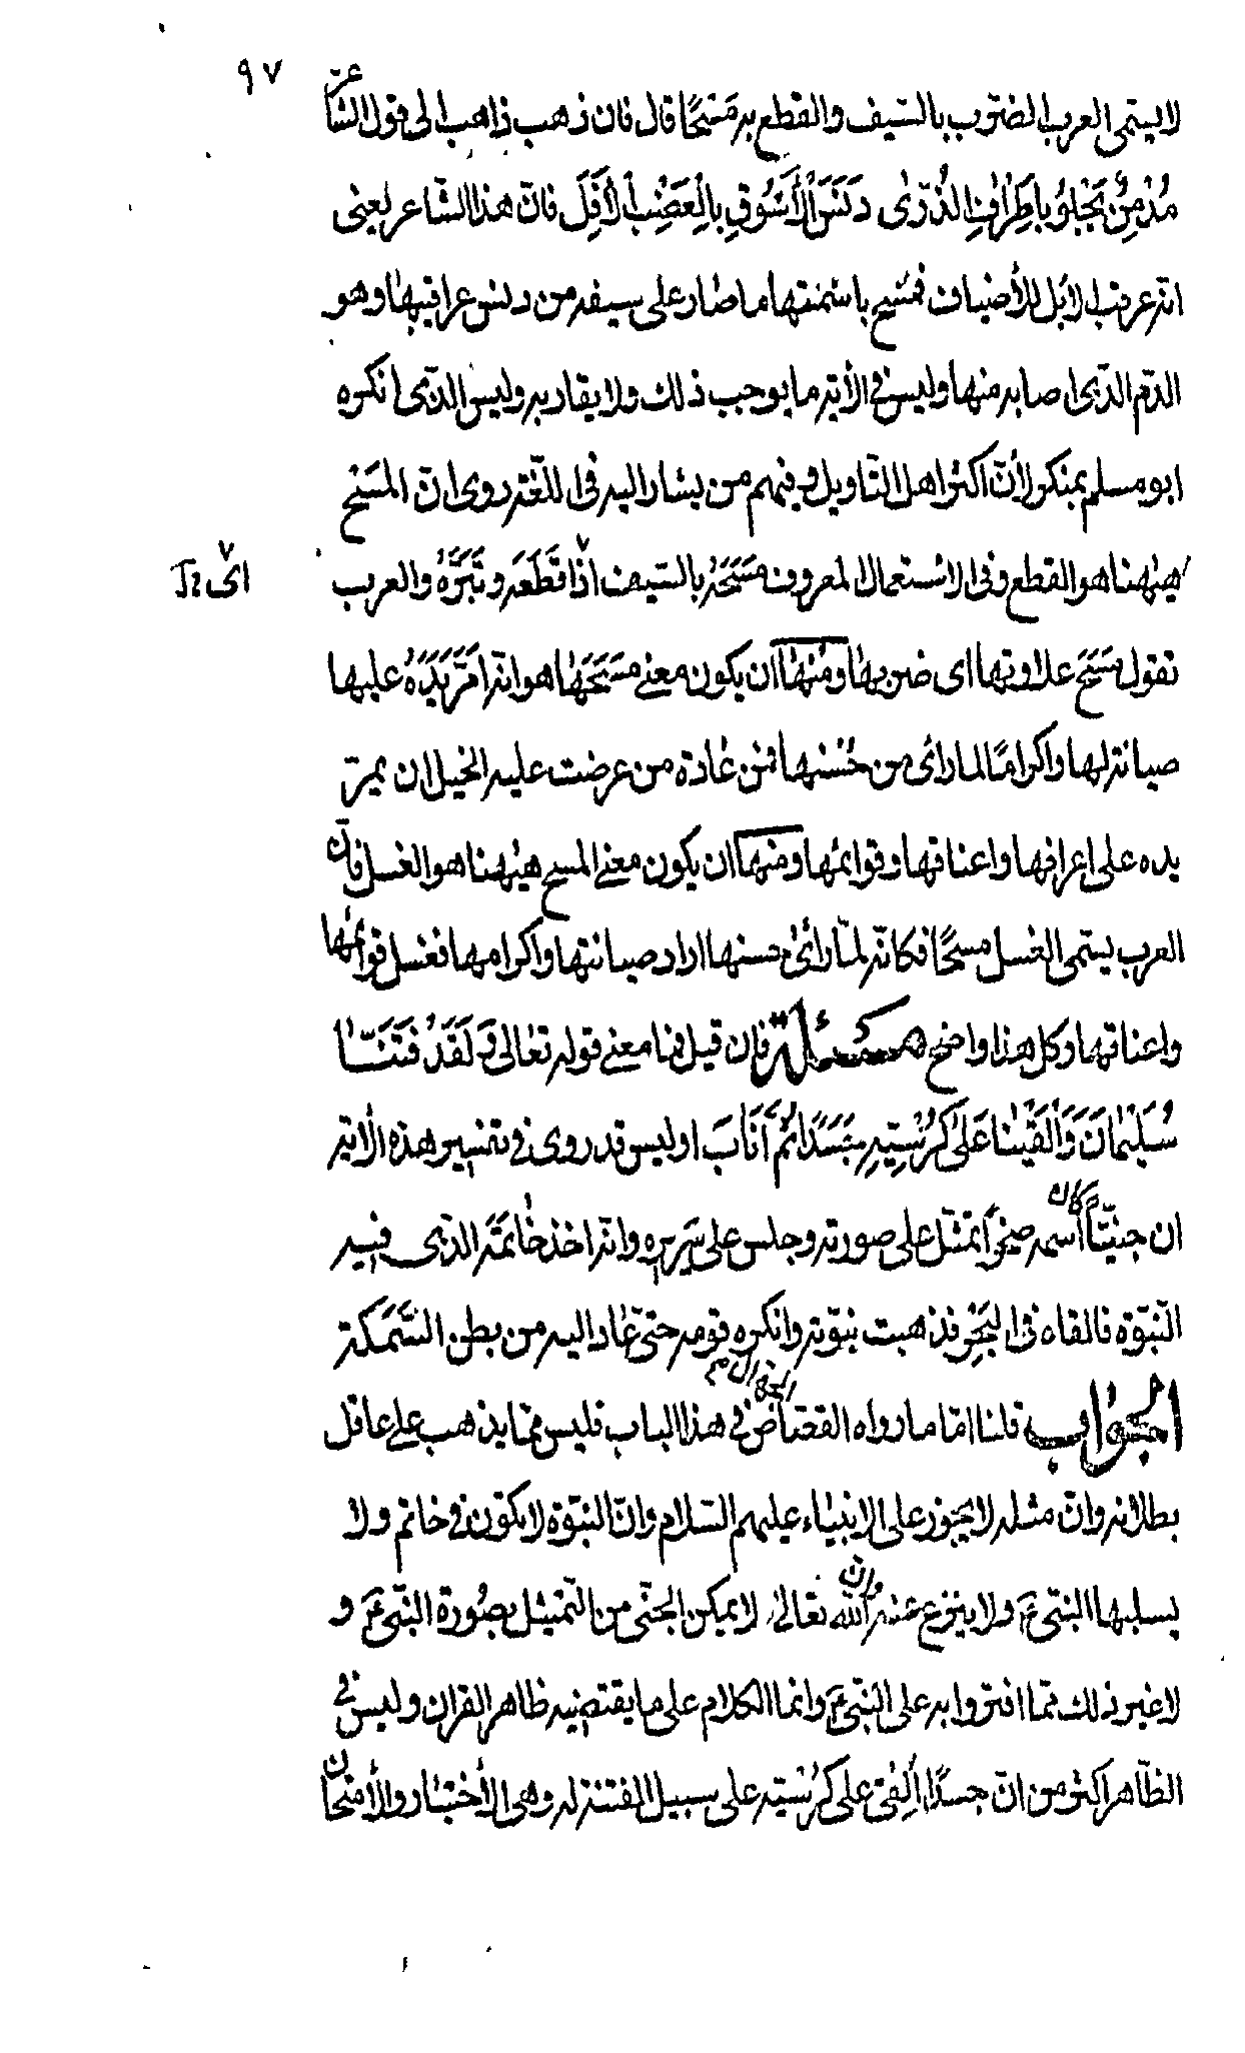 ٩٧
لا يسمّى العرب الضّرب بالسّيف والقطع به مَسْحًا قال فان ذهب ذاهب الى قول الشّاعر
مُدْمِنٌ يَجْلُو بِاَطْرافِ الذُّرٰى دَنَسَ الْأَسْوُقِ بِالْعَضْبِ الْأَفَلّ فانّ هذا الشّاعر يعنى
انّه عرقب الابل للأضياف فمسح باسنمتها ما صار على سيفه من دنس عراقيبها وهو
الدّم الذّى اصابه منها وليس فى الأية ما يوجب ذلك ولا يقاربه وليس الذّى انكره
ابو مسلم بمنكر لأنّ اكثر اهل التّاويل وفيهم من يشار اليه فى اللّغة روى انّ المسْح
هيٰهنا هو القطع وفى الاستعمال المعروف مَسَحَهُ بالسّيف اذا قَطَعَه وبَتَرَهُ والعرب
اى
تقول مَسَحَ علاوتها اى ضربها ومنها ان يكون معنى مَسَحَهٰا هو انّه اَمَرَّ يَدَهُ عليها
صيانة لها واكرامًا لما رأى من حُسْنها فمن عٰادة من عرضت عليه الخيل ان يمرّ
يده على اعرافها واعناقها وقوائمها ومنها ان يكون معنى المسح هيٰهنا هو الغسل فانّ
العرب يسمّى الغسل مسحًا فكانّه لمّا رأى حسنها اراد صيانتها واكرامها فغسل قوائمها
واعناقها وكل هذا واضح مسئلة فان قيل فما معنى قوله تعٰالى وَلَقَدْ فَتَنّٰا
سُلَيْمٰانَ وَاَلْقَيْنٰا عَلىٰ كُرْسِيِّهِ جَسَدًا ثُمَّ اَنَابَ اوليس قد روى فى تفسير هذه الأية
ان جنيّاً كان اسمه صخراً تمثّل على صورته وجلس على سَرِيره وانّه اخذ خٰاتمَه الذّى فيه
النّبوّة فالقاه فى البَحْرِ فذهبت نبوّته وانكره قومه حتّى عٰاد اليه من بطن السّمكة
الجوٰاب قلنا امّا ما رواه القصّاص الجهال فى هذا الباب فليس ممّا يذهب على عاقل
بطلانه وانّ مثله لا يجوز على الانبيٰاء عليهم السّلام وانّ النبوّة لا تكون فى خاتم ولا
يسلبها النبّى ع ولا ينزع عنه وان الله تعٰالىٰ لا يمكن الجنّى من التّمثيل بصُورة النبّى ع و
لا غير ذلك ممّا افتروا به على النبّى ع وانما الكلام على ما يقتضيه ظاهر القران وليس فى
الظّاهر اكثر من انّ جسدًا اُلقِىَ على كُرْسيّه على سبيل الفتنة له وهى الأختبار والأمتحان